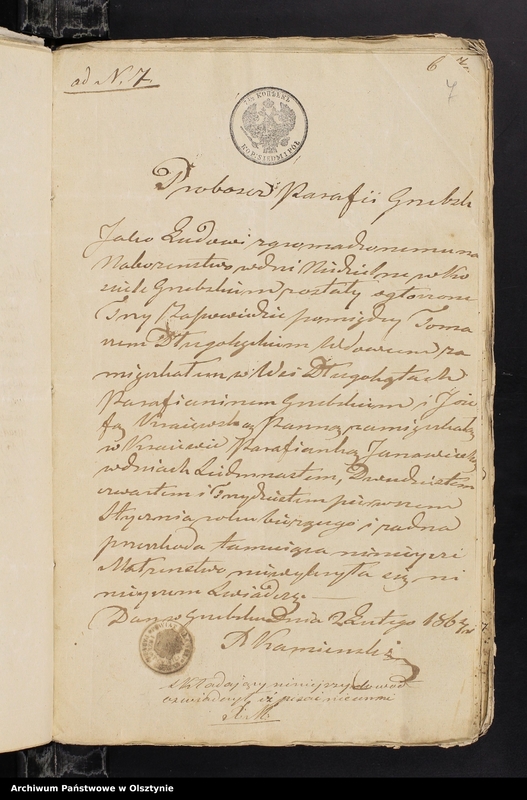 ad N. 7
6
7
7½ КОПѢЕКЪ
Proboszcz Parafii Grzebsk
Jako Ludowi zgromadzonemu na
Nabożeństwo w dni Niedzielne w Ko
ściele Grzebskim zostały ogłoszone
Trzy Zapowiedzie pomiędzy Toma
szem Długołęckim Wdowcem za
mięszkałym w Wsi Długołętach
Parafianinem Grzebskim i Józe
fą Kraiewską Panną zamięszkałą
w Kraiewie Parafianką Janowiecką
w dniach Siedmnastem, Dwudziestem
czwartem i Trzydziestem pierwszem
Stycznia roku bieżącego i żadna
przeszkoda tamuiąca ninieyszi
Małżeństwo niewykryła się, ni
nieyszem Świadczę. —
Dan w Grzebsku Dnia 2 Lutego 186
P. Kamieński
Składający ninieyszy dowod
oświadczył iż pisać nieumi
Archiwum Państwowe w Olsztynie